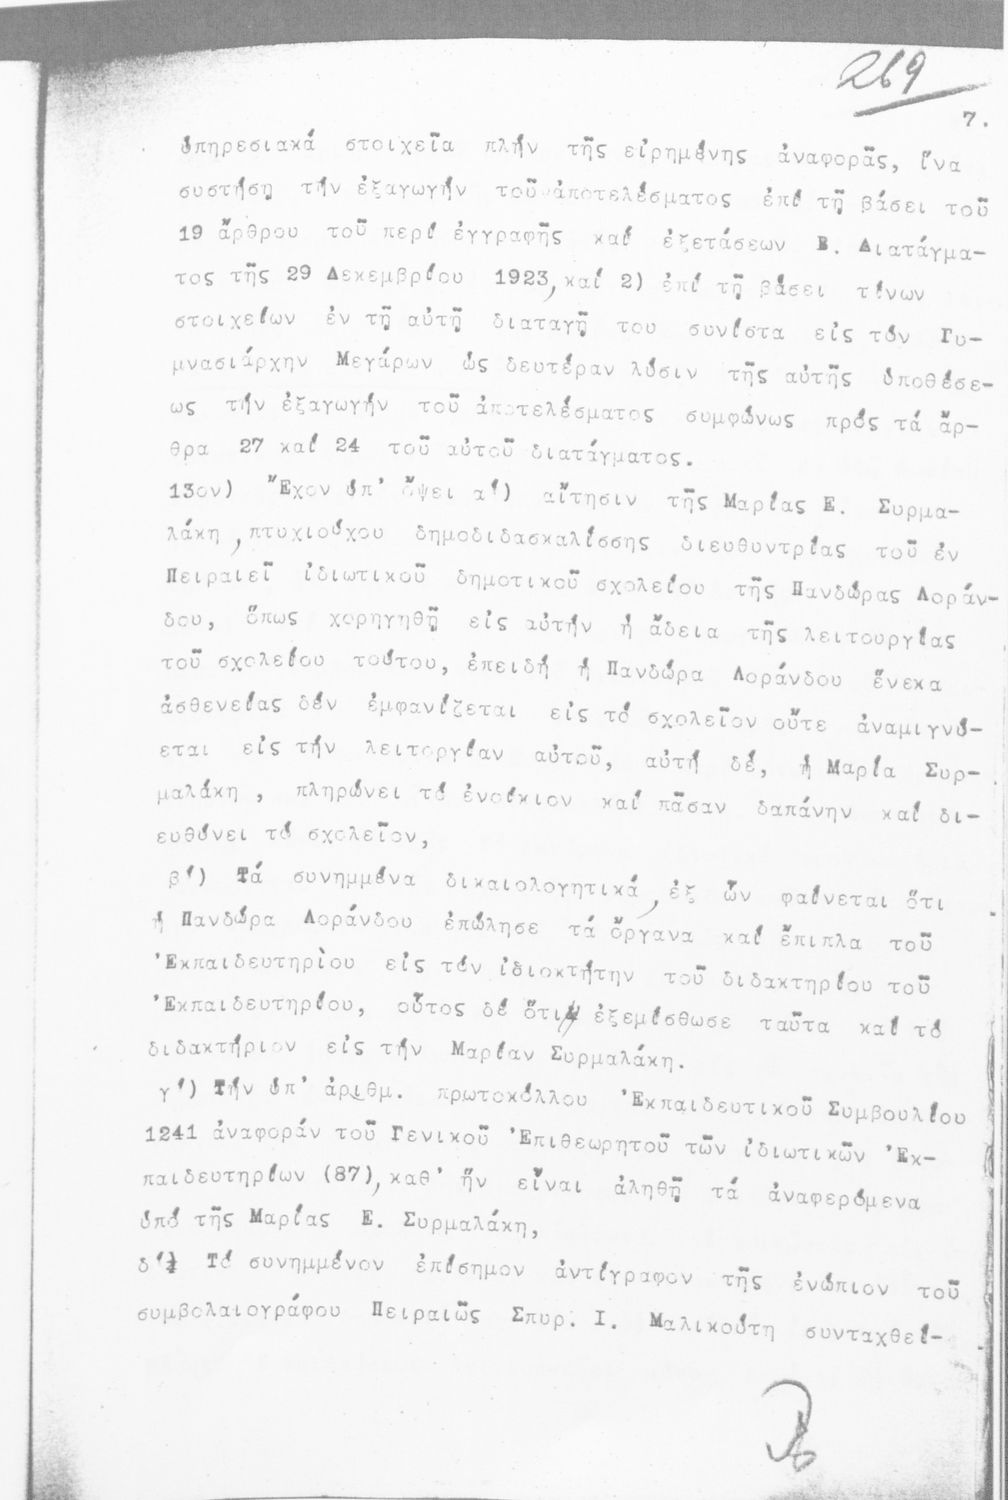 269
7.
ὑπηρεσιακά στοιχεῖα πλήν τῆς εἰρημένης ἀναφορᾶς, ἵνα
συστήσῃ τήν ἐξαγωγήν τοῦ ἀποτελέσματος ἐπί τῇ βάσει τοῦ
19 ἄρθρου τοῦ περί ἐγγραφῆς καί ἐξετάσεων Β. Διατάγμα-
τος τῆς 29 Δεκεμβρίου 1923, καί 2) ἐπί τῇ βάσει τίνων
στοιχείων ἐν τῇ αὐτῇ διαταγῇ του συνίστα εἰς τόν Γυ-
μνασιάρχην Μεγάρων ὡς δευτέραν λύσιν τῆς αὐτῆς ὑποθέσε-
ως τήν ἐξαγωγήν τοῦ ἀποτελέσματος συμφώνως πρός τά ἄρ-
θρα 27 καί 24 τοῦ αὐτοῦ διατάγματος.
13ον) Ἔχον ὑπ' ὄψει α΄) αἴτησιν τῆς Μαρίας Ε. Συρμα-
λάκη, πτυχιούχου δημοδιδασκαλίσσης διευθυντρίας τοῦ ἐν
Πειραιεῖ ἰδιωτικοῦ δημοτικοῦ σχολείου τῆς Πανδώρας Λοράν-
δου, ὅπως χορηγηθῇ εἰς αὐτήν ἡ ἄδεια τῆς λειτουργίας
τοῦ σχολείου τούτου, ἐπειδή ἡ Πανδώρα Λοράνδου ἕνεκα
ἀσθενείας δέν ἐμφανίζεται εἰς τό σχολεῖον οὔτε ἀναμιγνύ-
εται εἰς τήν λειτοργίαν αὐτοῦ, αὐτή δέ, ἡ Μαρία Συρ-
μαλάκη , πληρώνει τό ἐνοίκιον καί πᾶσαν δαπάνην καί δι-
ευθύνει τό σχολεῖον,
β΄) Τά συνημμένα δικαιολογητικά, ἐξ ὧν φαίνεται ὅτι
ἡ Πανδώρα Λοράνδου ἐπώλησε τά ὄργανα καί ἔπιπλα τοῦ
Ἐκπαιδευτηρίου εἰς τόν ἰδιοκτήτην τοῦ διδακτηρίου τοῦ
Ἐκπαιδευτηρίου, οὗτος δέ ὅτι ἐξεμίσθωσε ταῦτα καί τό
διδακτήριον εἰς τήν Μαρίαν Συρμαλάκη.
γ΄) Τήν ὑπ' ἀριθμ. πρωτοκόλλου Ἐκπαιδευτικοῦ Συμβουλίου
1241 ἀναφοράν τοῦ Γενικοῦ Ἐπιθεωρητοῦ τῶν ἰδιωτικῶν Ἐκ-
παιδευτηρίων (87), καθ' ἥν εἶναι ἀληθῆ τά ἀναφερόμενα
ὑπό τῆς Μαρίας Ε. Συρμαλάκη,
δ΄) Τό συνημμένον ἐπίσημον ἀντίγραφον τῆς ἐνώπιον τοῦ
συμβολαιογράφου Πειραιῶς Σπυρ. Ι. Μαλικούτη συνταχθεί-